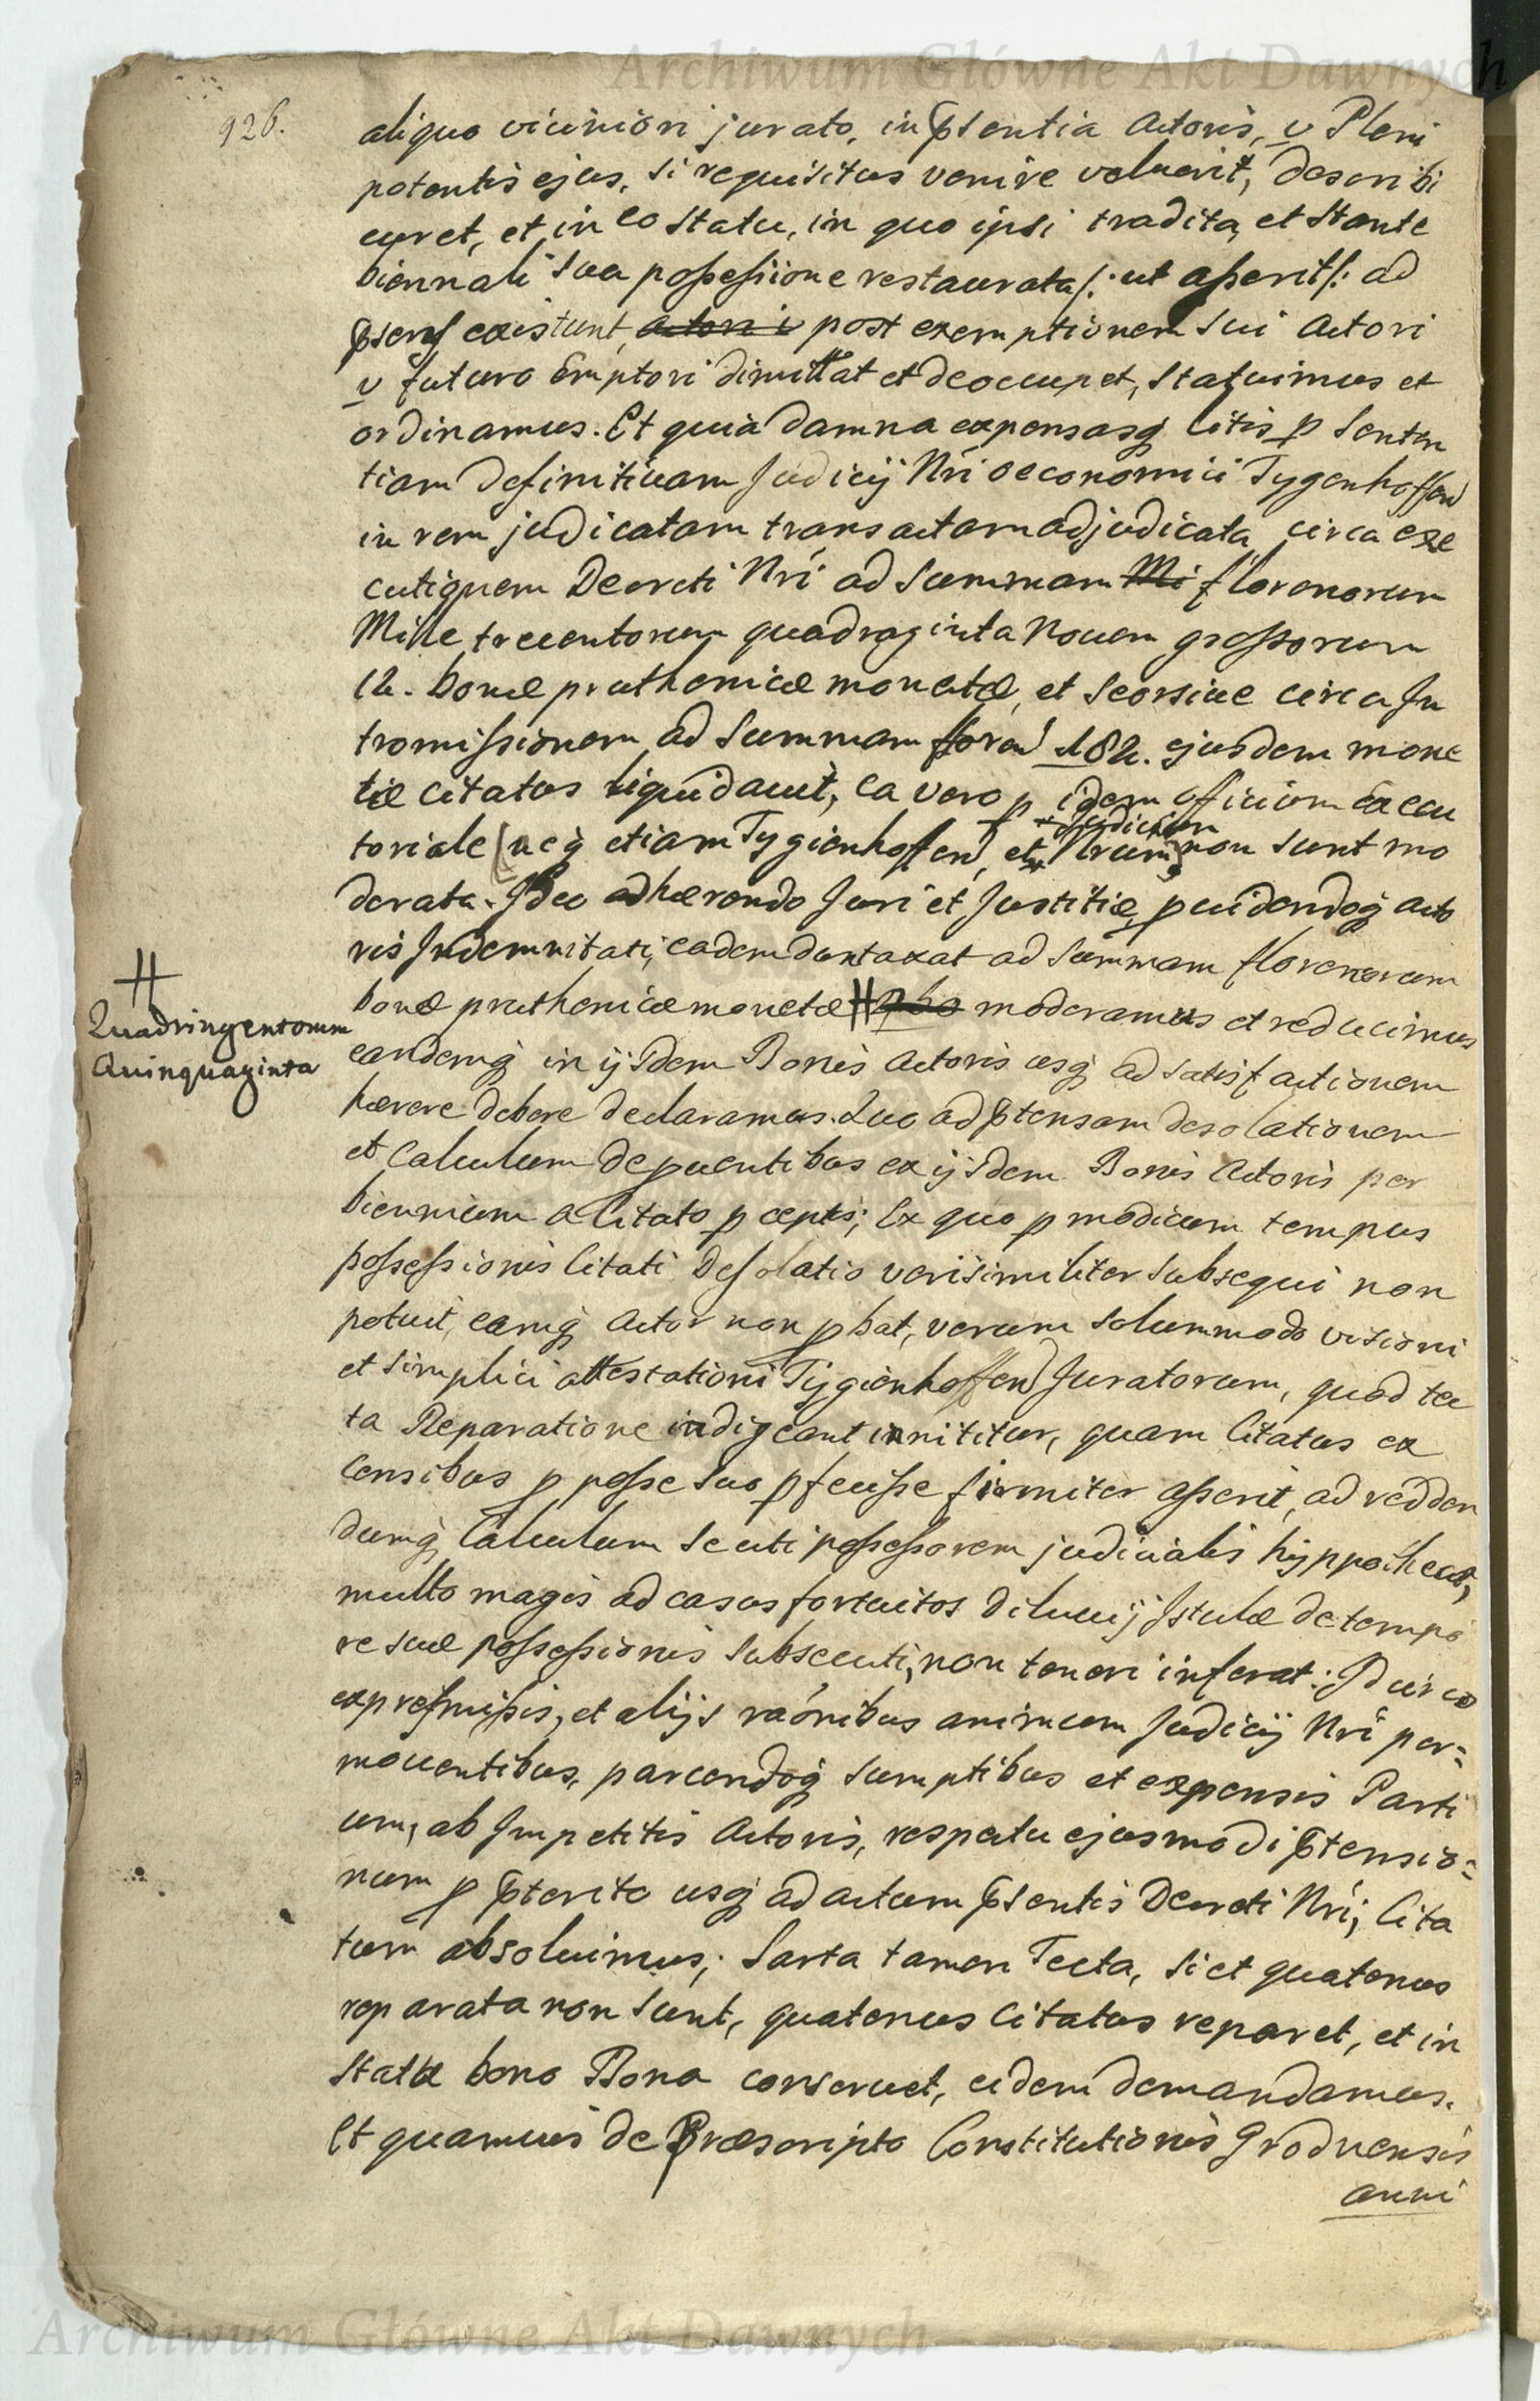 Archiwum Główne Akt Dawnych
926.
aliquo viciniori jurato, in pñsentia Actoris, v Pleni
potentis ejus, si requisitus venire voluerit, describi
curet, et in eo statu, in quo ipsi tradita, et stante
biennali sua possessione restaurata /: ut asserit /: ad
pñsens existunt, actori v post exemptionem sui Actori
v futuro Emptori dimittat et deoccupet, statuimus et
ordinamus. Et quia damna expensasq; litis p senten
tiam definitivam Judicij Nri oeconomici Tygenhoffen
in rem judicatam transactam adjudicata, circa exe
cutiquem Decreti Nri ad summam Mi florenorum
Mille trecentorum quadraginta Novem grossorum
12. bonæ pruthenicæ monetæ, et seorsive circa In
tromissionem ad summam floren 182. ejusdem mone
tæ Citatus liquidavit, ea vero p idem officium Execu
toriale (neq; etiam Tygienhoffen, et * Nrum) non sunt mo
* Judicium
derata. Ideo adhærendo Juri et Justitiæ, pvidendoq; Acto
ris Indemnitati, eadem duntaxat ad summam florenorum
bonæ pruthenicæ monetæ # moderamus et reducimus
#
Quadringentorum
Quinquaginta
eandemq; in ijsdem Bonis Actoris usq; ad satisfactionem
hærere debere declaramus. Quo ad prætensam desolationem
et Calculum de pventibus ex ijsdem Bonis Actoris per
biennium a Citato pceptis; Ex quo p modicum tempus
possessionis Citati desolatio verisimiliter subsequi non
potuit, eamq; Actor non pbat, verum solummodo visioni
et simplici attestationi Tygienhoffen Juratorum, quod tec
ta Reparatione indigeant innititur, quam Citatus ex
Censibus p posse suo pfecisse firmiter asserit, ad redden
dumq; Calculum se uti possessorem judicialis hyppothecæ,
multo magis ad casus fortuitos diluvij Istulæ de tempo
re suæ possessionis subsecuti, non teneri inferat: Idcirco
ex præmissis, et alijs raonibus animum Judicij Nri per=
moventibus, parcendoq; sumptibus et expensis Parti
um, ab Impetitis Actoris, respectu ejusmodi prætensio=
num p præterito usq; ad actum pñsentis Decreti Nri, Cita
tum absolvimus; Sarta tamen Tecta, si et quatenus
reparata non sunt, quatenus Citatus reparet, et in
statu bono Bona conservet, eidem demandamus.
Et quamvis de Præscripto Constitutionis Grodnensis
anni
Archiwum Główne Akt Dawnych